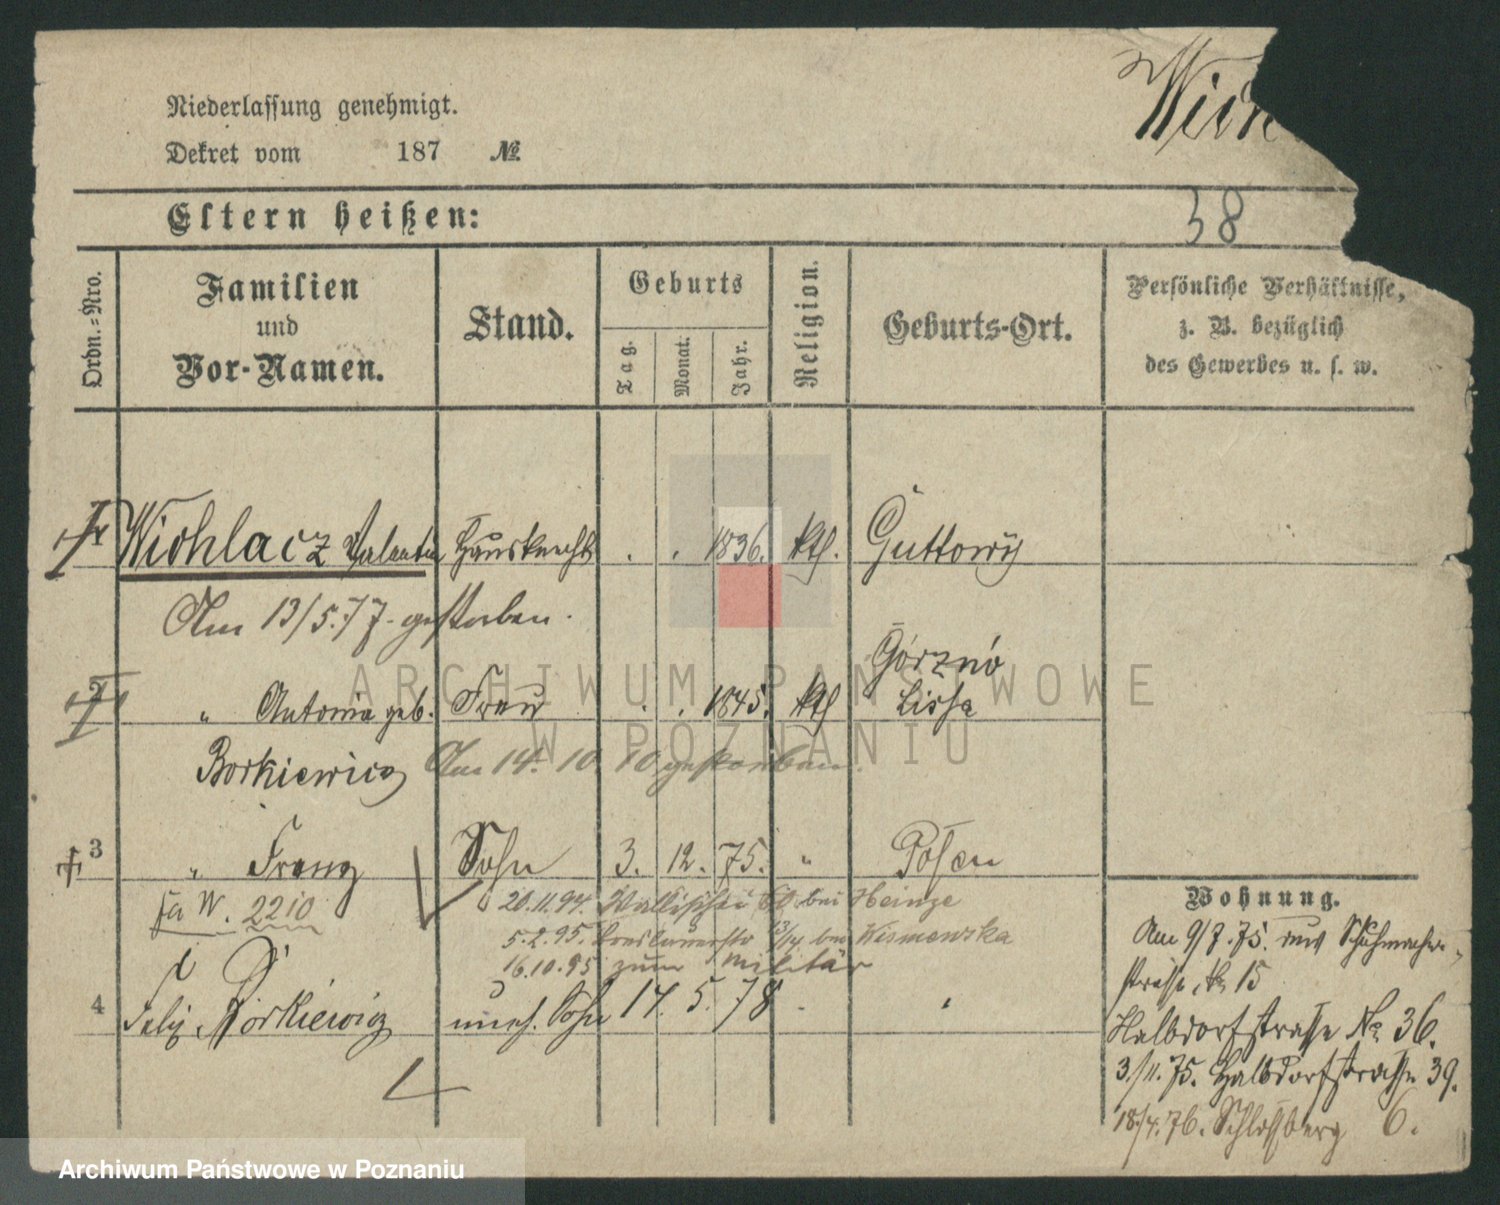 Niederlassung genehmigt.
Dekret vom 187 №
38
Eltern heißen:
Ordn.-Nro.
Familien und Vor-Namen.
Stand.
Geburts
Tag.
Monat.
Jahr.
Religion.
Geburts-Ort.
Persönliche Verhältnisse,
z. B. bezüglich
des Gewerbes u. s. w.
Wichlacz Valentin Hausknecht . . 1836. kth. Guttowy
Am 13/5.77 gestorben.
Górzno
" Antonia geb. Frau . . 1845. kth Lissa
Borkiewicz Am 14. 10 10 gestorben.
3 " Franz Sohn 3. 12. 75. " Posen
fa W. 2210
20.11.94. Wallischei bei Heinze
5.2.95. 13/14 bei
16.10.95 zum Militär
4 Felix Borkiewicz uneh. Sohn 17. 5. 78
Wohnung.
Am 9/7.75. aus Schuhmacher-
strasse 15
Halbdorfstrasse No 36.
3./11.75. Halbdorfstrasse 39.
18/4.76. Schlossberg 6.
ARCHIWUM PAŃSTWOWE
W POZNANIU
Archiwum Państwowe w Poznaniu